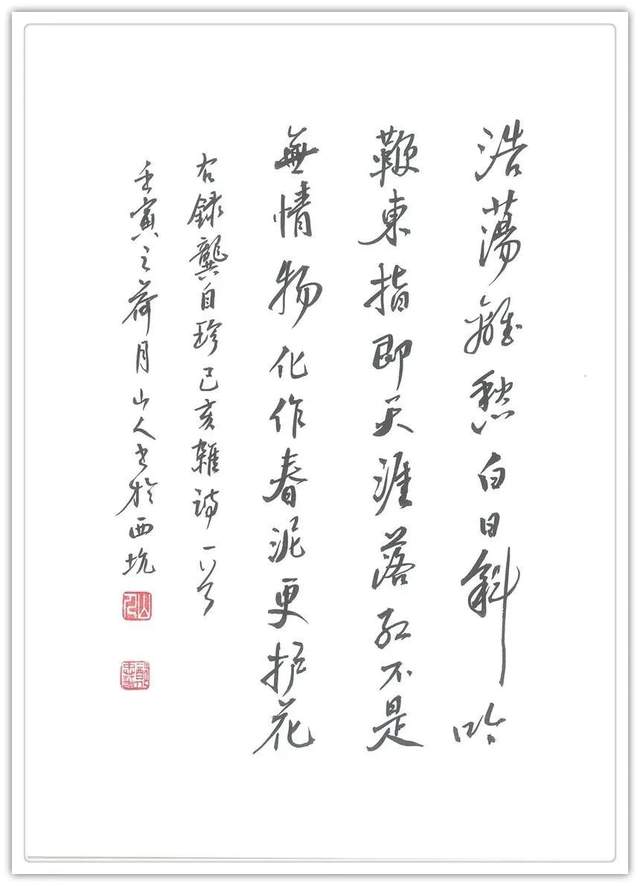 浩蕩離愁白日斜吟
鞭東指即天涯落红不是
無情物化作春泥更护花
右録龔自珍己亥雜詩一首
壬寅之荷月山人书於西坑
山人